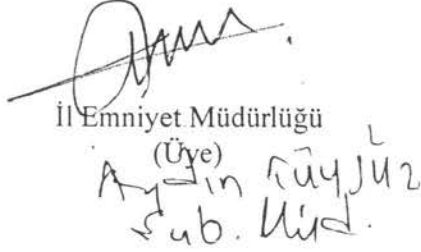 İl Emniyet Müdürlüğü
(Üye)
Aydın
Şub. Müd.